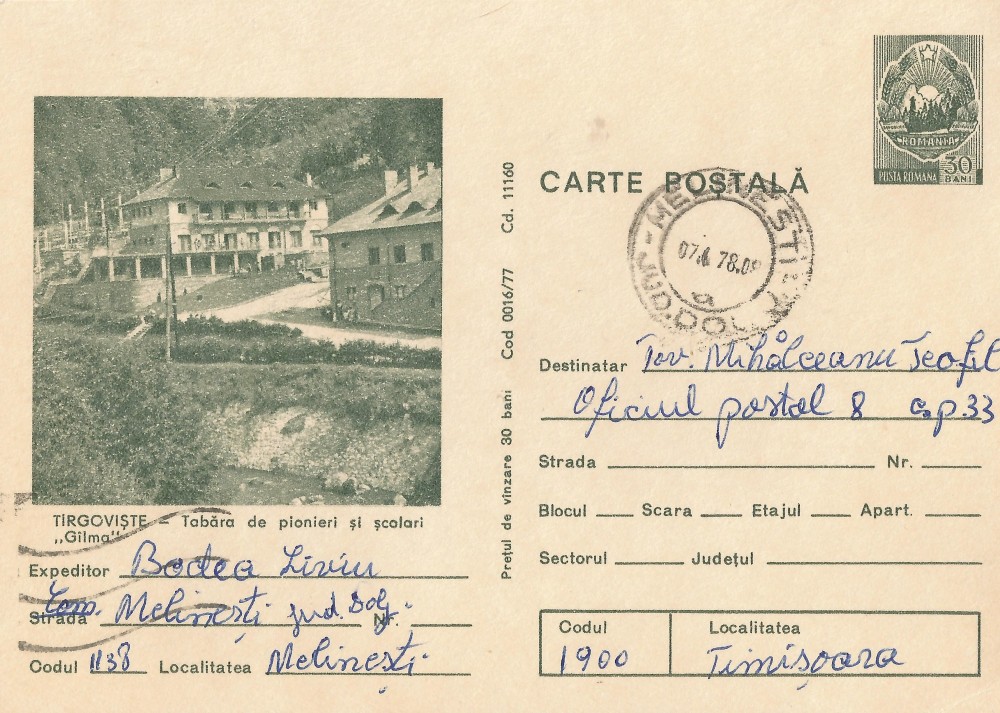 ROMÂNIA
POSTA ROMANA 30 BANI
CARTE POȘTALĂ
MELINEȘTI
07. 78.0
JUD. DOLJ
a
Prețul de vînzare 30 bani Cod 0016/77 Cd. 11160
TÎRGOVIȘTE – Tabăra de pionieri și școlari
„Gilma”
Expeditor Bodea Liviu
Strada Com. Melinești jud. Dolj. Nr.
Codul 1138 Localitatea Melinești
Destinatar Tov. Mihâlceanu Teofil
Oficiul postal 8 c.p. 33
Strada Nr.
Blocul Scara Etajul Apart.
Sectorul Județul
Codul Localitatea
1900 Timișoara